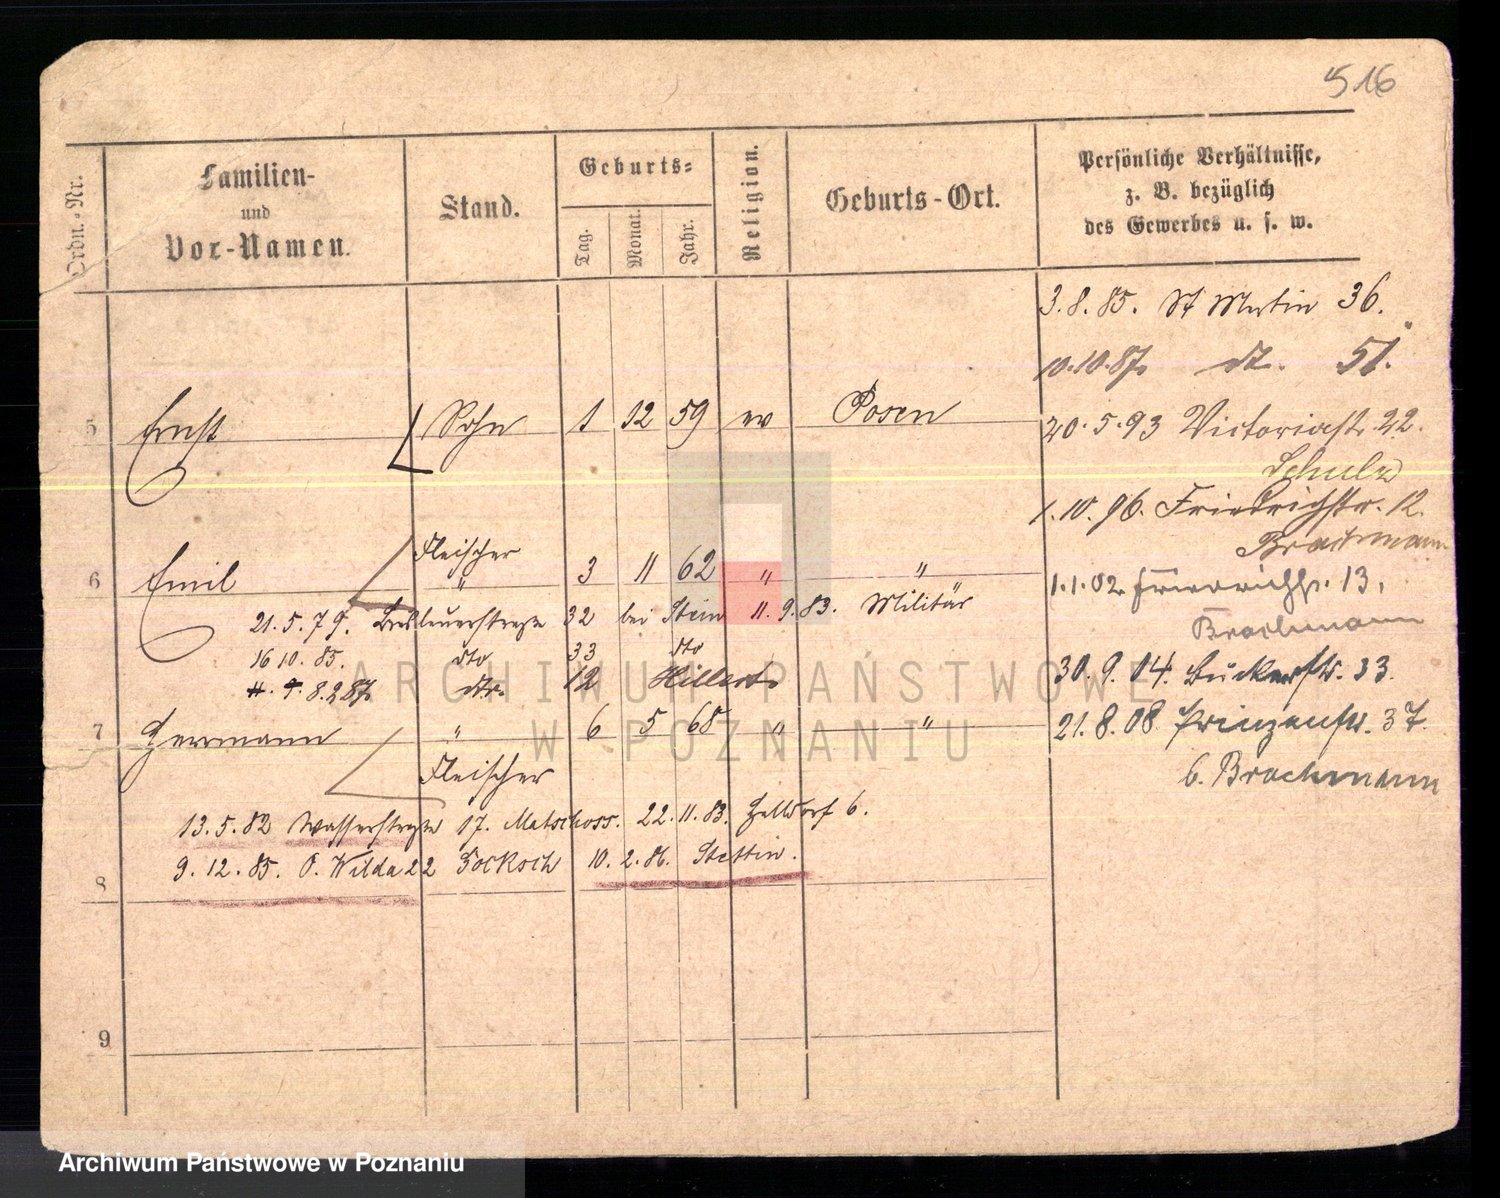 516
Ordn.-Nr.
Familien-
und
Vor-Namen.
Stand.
Geburts-
Tag.
Monat.
Jahr.
Religion.
Geburts-Ort.
Persönliche Verhältnisse,
z. B. bezüglich
des Gewerbes u. s. w.
3.8.85. St Martin 36.
10.10.87. dt. 51.
5 Ernst Sohn 1 12 59 ev Posen
20.5.93 Victoriastr. 22.
Schulz
1.10.96. Friedrichstr. 12.
Brachmann
Fleischer
6 Emil " 3 11 62 " "
1.1.02. Friedrichstr. 13.
Brachmann
21.5.79. Breslauerstraße 32 bei Stein 11.9.83. Militär
16 10. 85. dto 33 dto
8.2 87. dto. 12 Hillert
30.9.04. Bukerstr. 33.
7 Hermann " 6 5 68 " "
21.8.08. Prinzenstr. 37.
b. Brachmann
Fleischer
13.5.82 Wasserstraße 17. Matschoss. 22.11.83. 6.
9.12.85. O. Wilda 22 10.2.86. Stettin.
8
9
ARCHIWUM PAŃSTWOWE
W POZNANIU
Archiwum Państwowe w Poznaniu